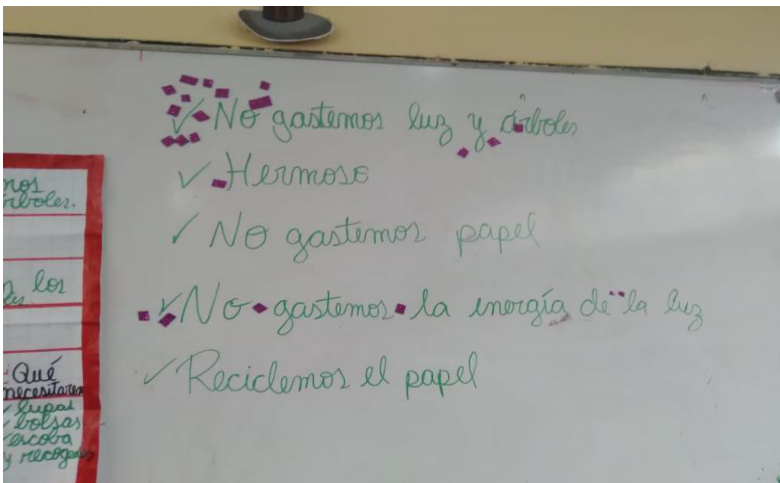 ✓ No gastemos luz y árboles
✓ Hermoso
✓ No gastemos papel
✓ No gastemos la energía de la luz
✓ Reciclemos el papel
árboles.
los
Qué
necesitare
✓ lupas
✓ bolsas
✓ escoba
y recoge